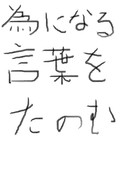 為になる
言葉を
たのむ